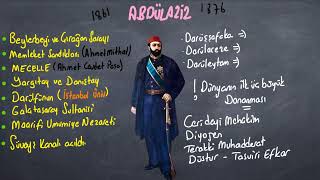 1861 ABDÜLAZİZ 1876
Beylerbeyi ve Çırağan Sarayı
Memleket Sandıkları (Ahmet Mithat)
MECELLE (Ahmet Cevdet Paşa)
Yargıtay ve Danıştay
Darülfünun (İstanbul Üniv)
Galatasaray Sultanisi
Maarifi Umumiye Nezareti
Süveyş Kanalı açıldı
Darüşşafaka =>
Darülaceze =>
Darüleytam =>
! Dünyanın ilk üç büyük
Donanması
Ceride-yi Mehakim
Diyojen
Terakki Muhadderat
Düstur - Tasviri Efkar